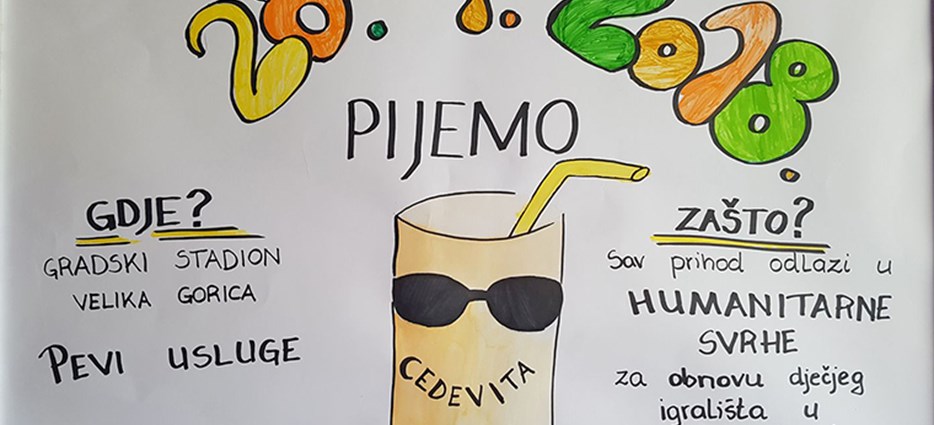 2018.
PIJEMO
GDJE?
GRADSKI STADION
VELIKA GORICA
PEVI USLUGE
CEDEVITA
ZAŠTO?
Sav prihod odlazi u
HUMANITARNE
SVRHE
za obnovu dječjeg
igrališta u